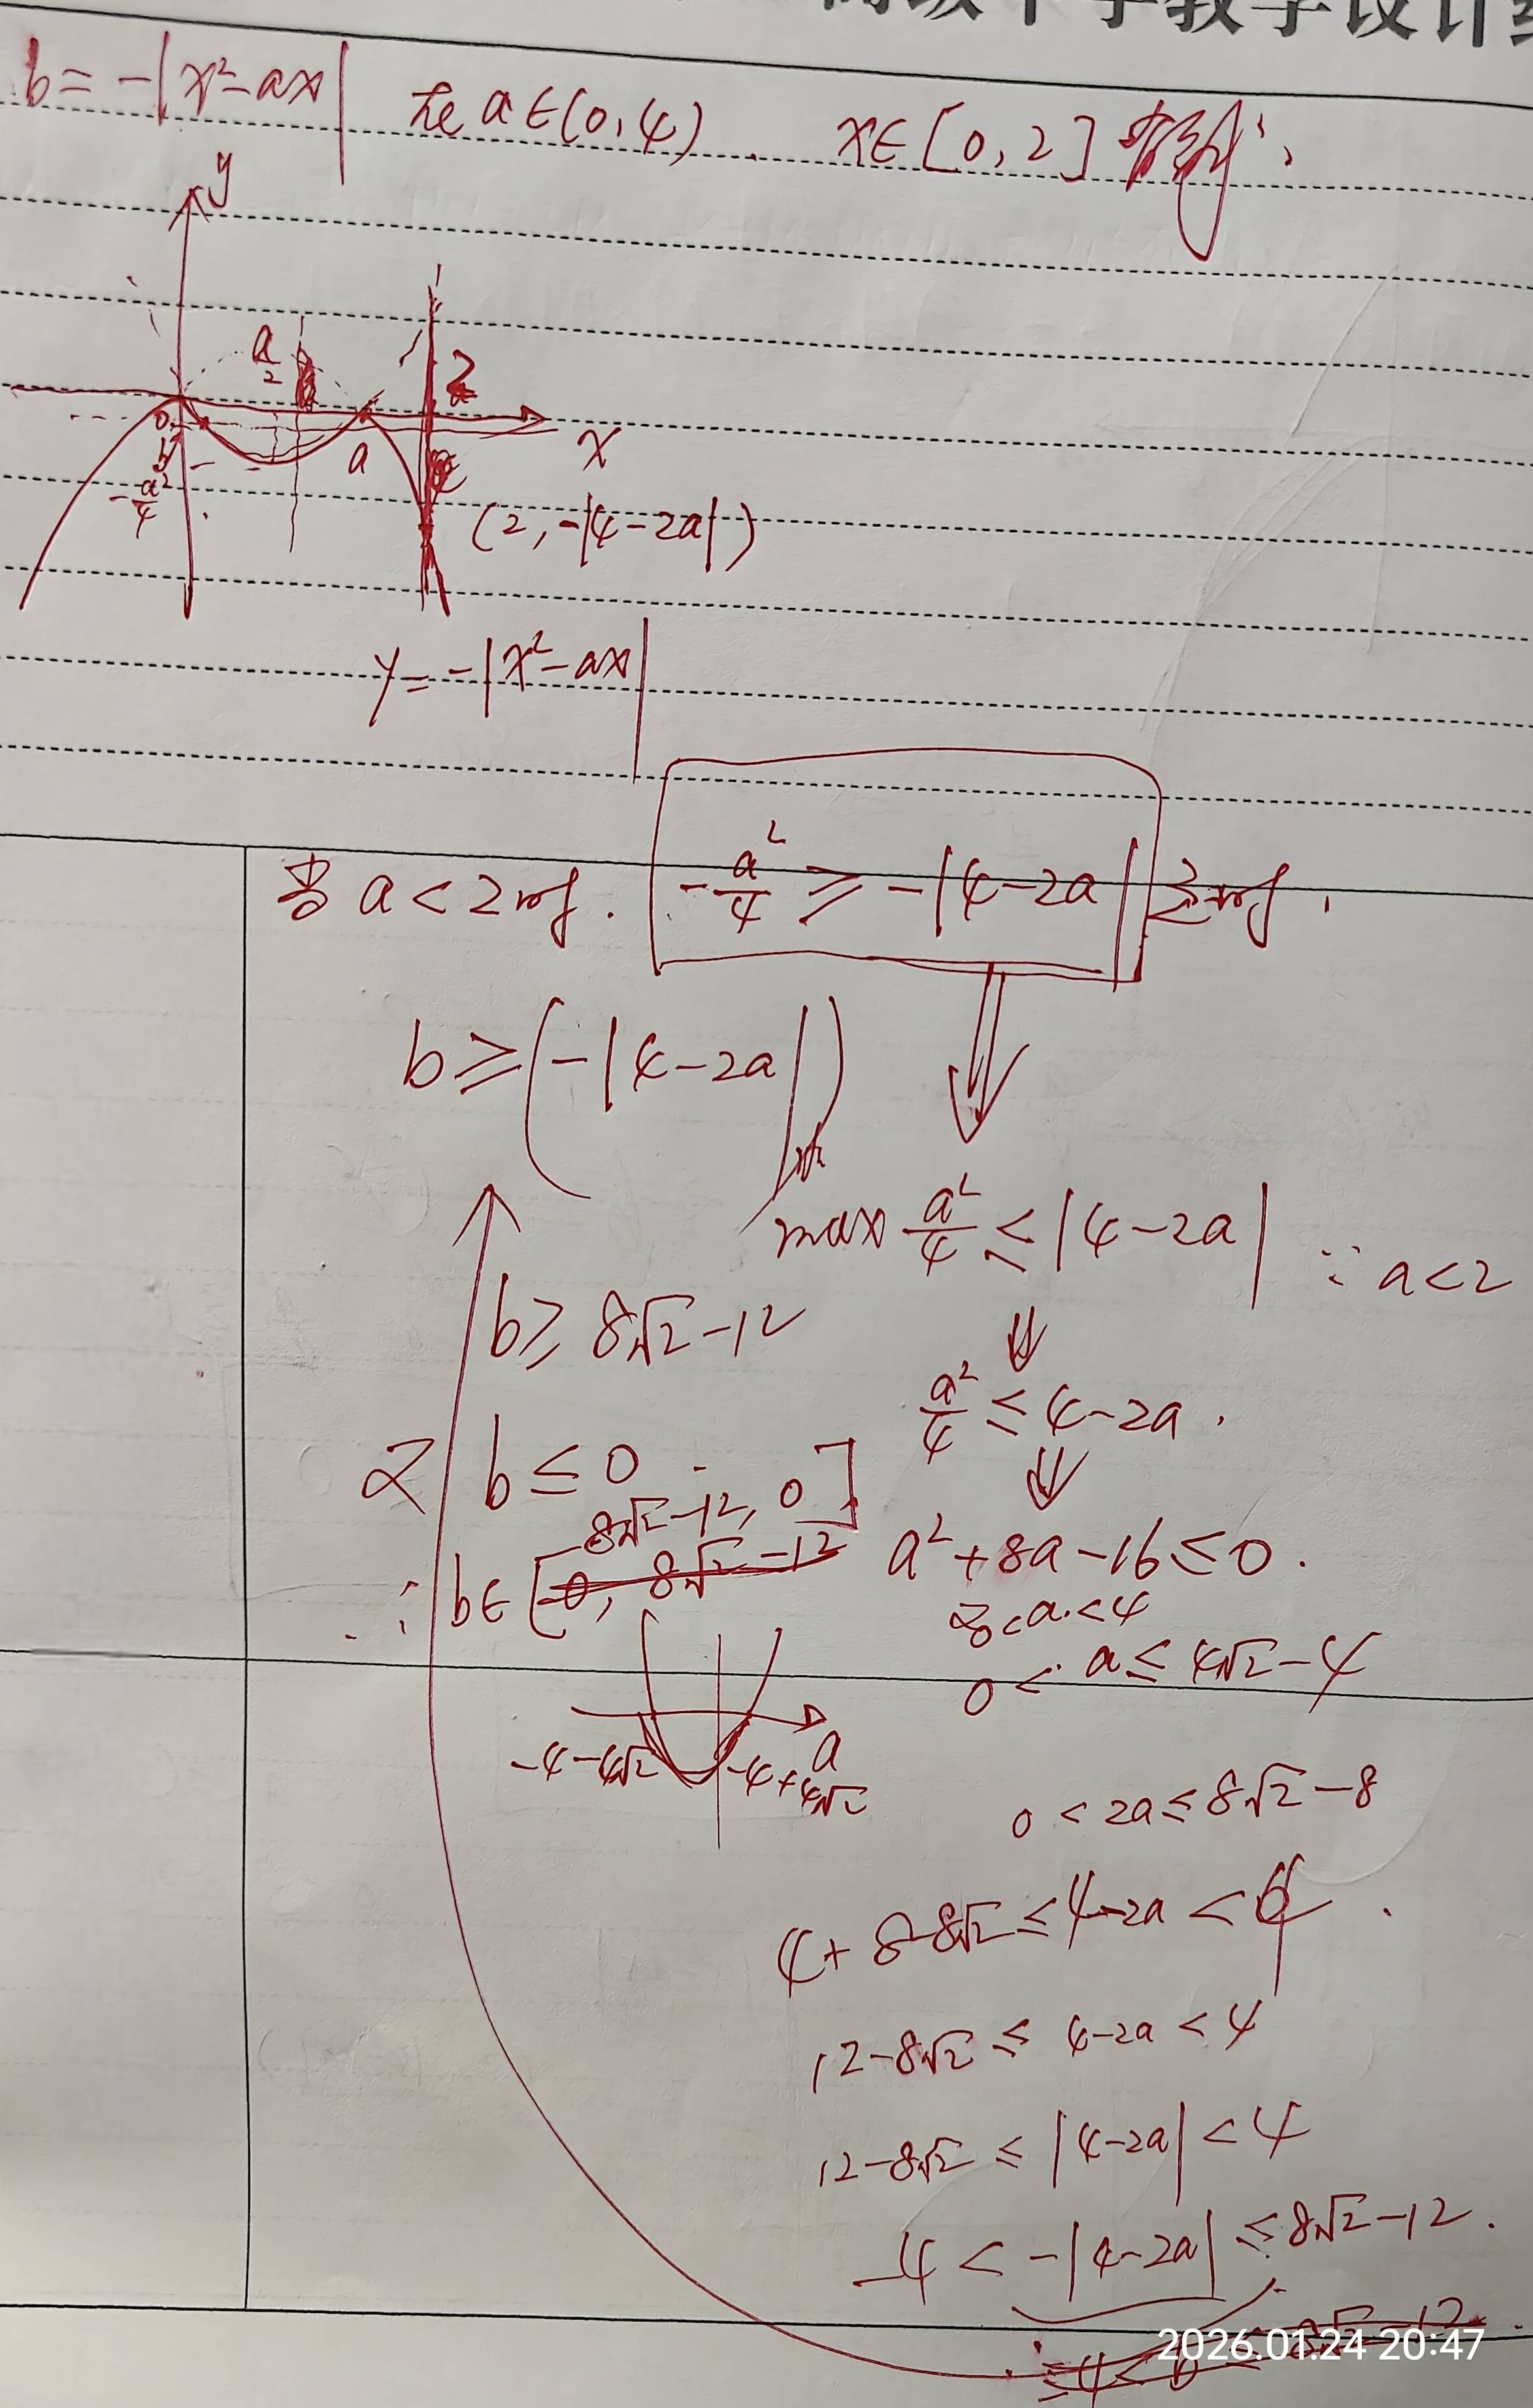 高级中学教学设计
b = -|x²-ax| 在 a∈(0,4). x∈[0,2]有解,
y
a/2
2
0
b
a
x
-a²/4
(2, -|4-2a|)
y = -|x²-ax|
当 a<2时. -a²/4 ≥ -|4-2a| 时,
b ≥ (-|4-2a|)
max
a²/4 ≤ |4-2a| ∵ a<2
b ≥ 8√2-12
a²/4 ≤ 4-2a.
又 b ≤ 0
8√2-12, 0]
∴ b∈[0, 8√2-12
a²+8a-16≤0.
0<a<4
0 < a ≤ 4√2-4
-4-4√2
-4+4√2
a
0 < 2a ≤ 8√2-8
4+8-8√2 ≤ 4-2a < 4.
12-8√2 ≤ 4-2a < 4
12-8√2 ≤ |4-2a| < 4
-4 < -|4-2a| ≤ 8√2-12.
-4 < b ≤ 8√2-12.
2026.01.24 20:47